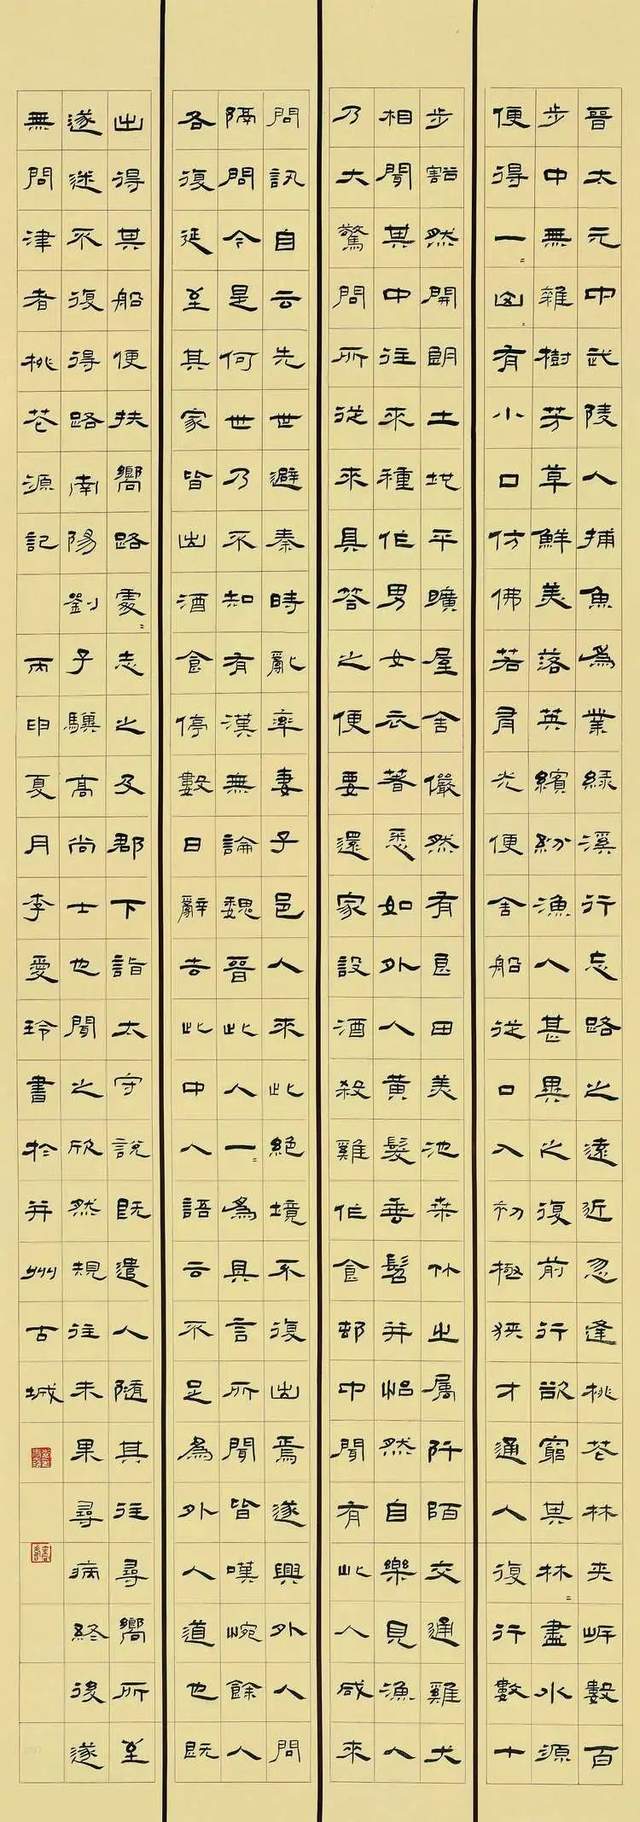 晉太元中武陵人捕魚為業緣溪行忘路之遠近忽逢桃花林夾岸數百
步中無雜樹芳草鮮美落英繽紛漁人甚異之復前行欲窮其林〻盡水源
便得一〻山有小口仿佛若有光便舍船從口入初極狹才通人復行數十
步豁然開朗土地平曠屋舍儼然有良田美池桑竹之屬阡陌交通雞犬
相聞其中往來種作男女衣著悉如外人黃髮垂髫并怡然自樂見漁人
乃大驚問所從來具答之便要還家設酒殺雞作食邨中聞有此人咸來
問訊自云先世避秦時亂率妻子邑人來此絕境不復出焉遂與外人間
隔問今是何世乃不知有漢無論魏晉此人一〻為具言所聞皆嘆惋餘人
各復延至其家皆出酒食停數日辭去此中人語云不足為外人道也既
出得其船便扶嚮路處〻志之及郡下詣太守說既遣人隨其往尋嚮所至
遂迷不復得路南陽劉子驥高尚士也聞之欣然規往未果尋病終後遂
無問津者桃花源記 丙申夏月李愛玲書於并州古城